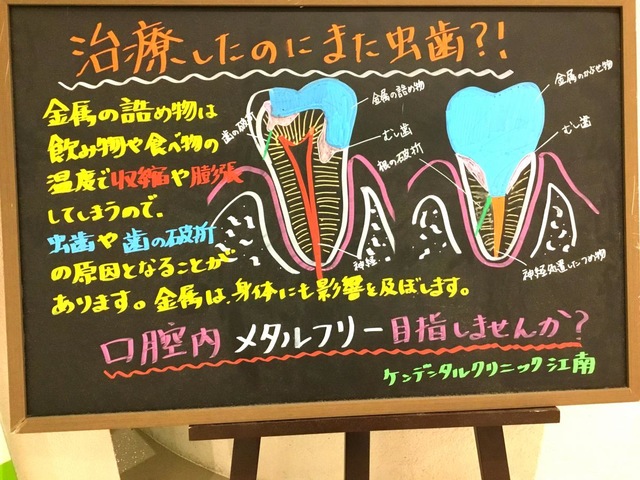 治療したのにまた虫歯?!
金属の詰め物は
飲み物や食べ物の
温度で収縮や膨張
してしまうので、
虫歯や歯の破折
の原因となることが
あります。金属は、身体にも影響を及ぼします。
歯の破折
金属の詰め物
むし歯
神経
金属のかぶせ物
むし歯
根の破折
神経処置したつめ物
口腔内 メタルフリー目指しませんか?
ケンデンタルクリニック江南